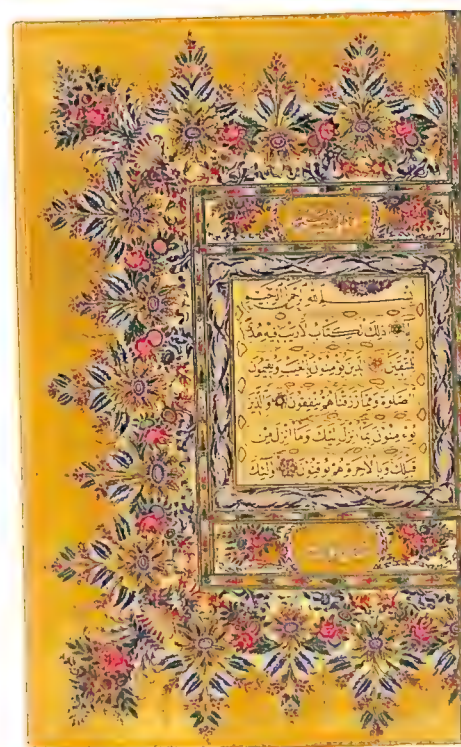 بسم الله الرحمن الرحيم
الم ذلك الكتاب لا ريب فيه هدى
للمتقين الذين يؤمنون بالغيب ويقيمون
الصلوة ومما رزقناهم ينفقون والذين
يؤمنون بما انزل اليك وما انزل من
قبلك وبالآخرة هم يوقنون اولئك